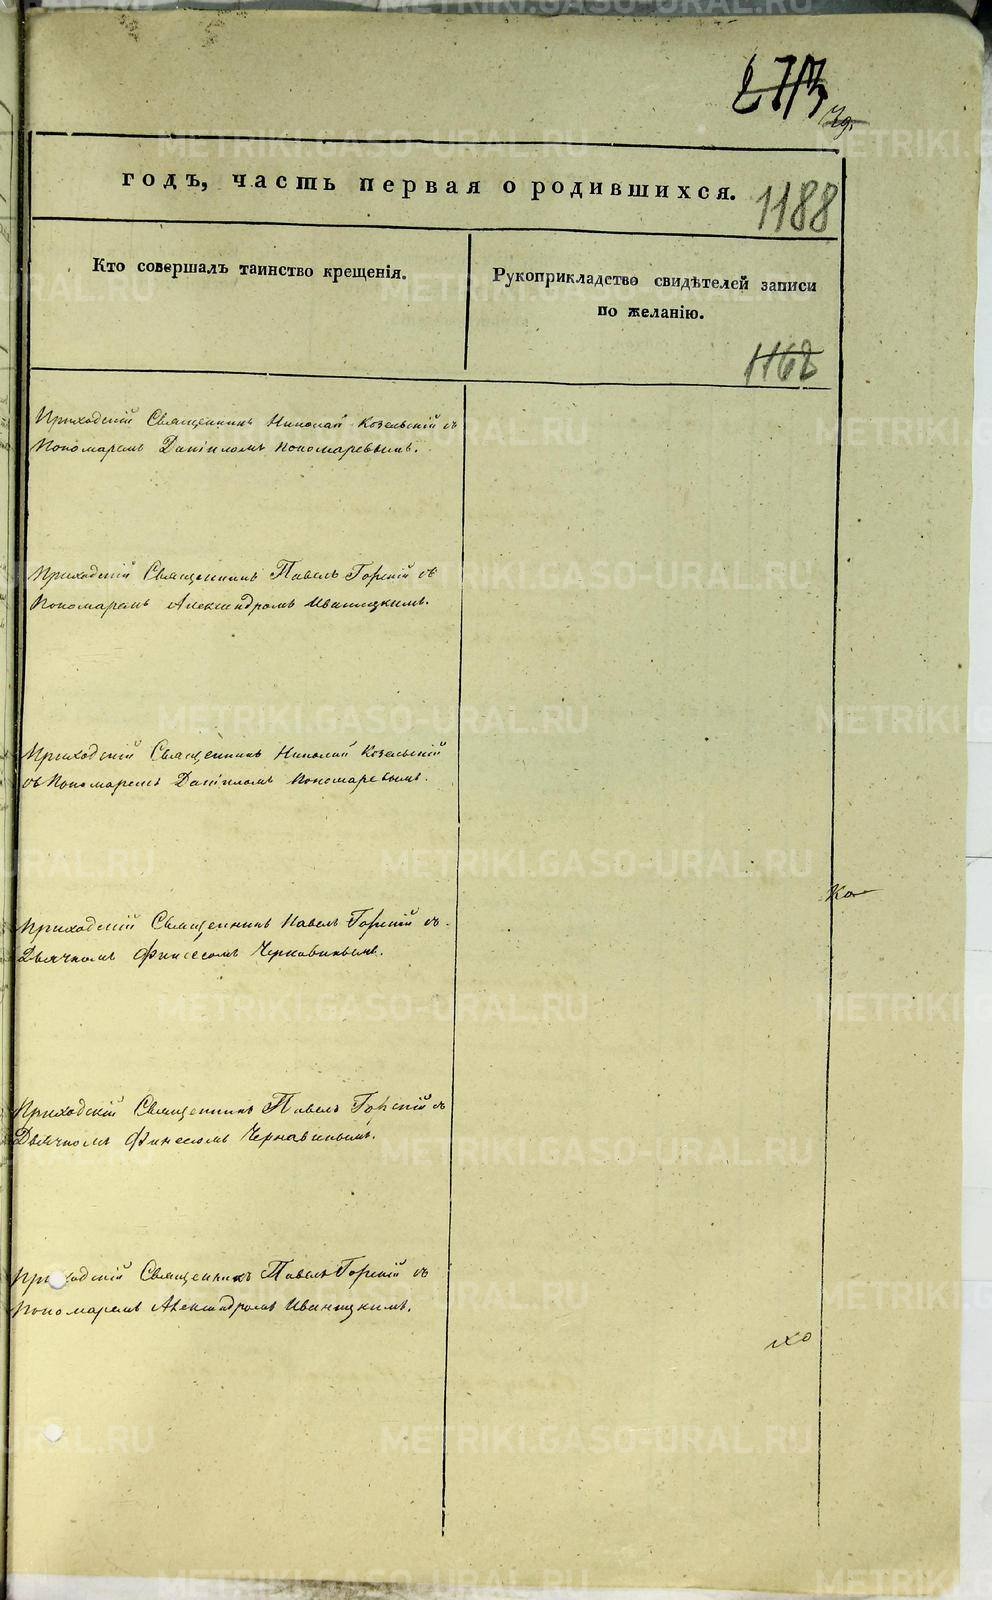 273
годъ, часть первая о родившихся.
1188
Кто совершалъ таинство крещенія.
Рукоприкладство свидѣтелей записи
по желанію.
1168
Приходскій Священникъ Николай Козельскій съ
Пономаремъ Даніиломъ Пономаревымъ.
Приходскій Священникъ Павелъ Горскій съ
Пономаремъ Александромъ Иваницкимъ.
Приходскій Священникъ Николай Козельскій
съ Пономаремъ Даніиломъ Пономаревымъ.
Приходскій Священникъ Павелъ Горскій съ
Дьячкомъ Финеесомъ Чернавинымъ.
Приходскій Священникъ Павелъ Горскій съ
Дьячкомъ Финеесомъ Чернавинымъ.
Приходскій Священникъ Павелъ Горскій съ
Пономаремъ Александромъ Иваницкимъ.
METRIKI.GASO-URAL.RU